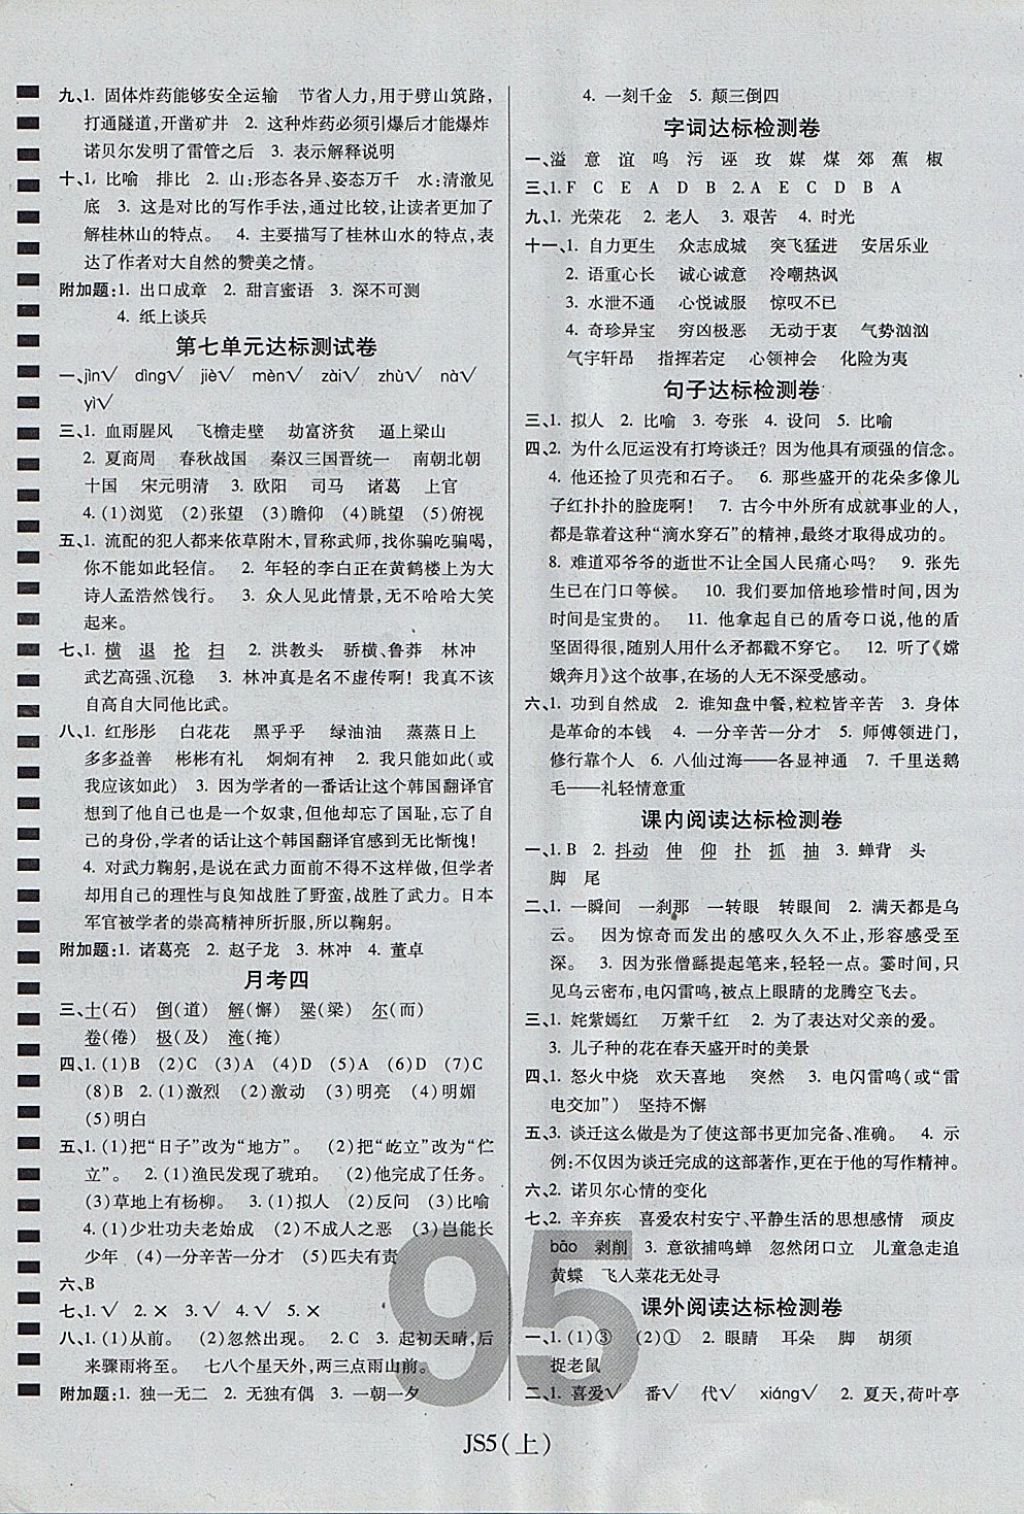 九、1. 固体炸药能够安全运输　节省人力,用于劈山筑路,
打通隧道,开凿矿井　2. 这种炸药必须引爆后才能爆炸
诺贝尔发明了雷管之后　3. 表示解释说明
十、1. 比喻　排比　2. 山:形态各异、姿态万千　水:清澈见
底　3. 这是对比的写作手法,通过比较,让读者更加了
解桂林山的特点。　4. 主要描写了桂林山水的特点,表
达了作者对大自然的赞美之情。
附加题:1. 出口成章　2. 甜言蜜语　3. 深不可测
4. 纸上谈兵
第七单元达标测试卷
一、jìn√　dìng√　jiè√　mèn√　zài√　zhù√　nà√
yì√
三、1. 血雨腥风　飞檐走壁　劫富济贫　逼上梁山
2. 夏商周　春秋战国　秦汉三国晋统一　南朝北朝
十国　宋元明清　3. 欧阳　司马　诸葛　上官
4. (1)浏览　(2)张望　(3)瞻仰　(4)眺望　(5)俯视
五、1. 流配的犯人都来依草附木,冒称武师,找俯骗吃骗喝,
你不能如此轻信。　2. 年轻的李白正在黄鹤楼上为大
诗人孟浩然饯行。　3. 众人见此情景,无不哈哈大笑
起来。
七、1. 横　退　抡　扫　2. 洪教头　骄横、鲁莽　林冲
武艺高强、沉稳　3. 林冲真是名不虚传啊!　我真不该
自高自大同他比武。
八、1. 红彤彤　白花花　黑乎乎　绿油油　蒸蒸日上
多多益善　彬彬有礼　炯炯有神　2. 我只能如此(或
我应该如此)　3. 因为学者的一番话让这个韩国翻译官
想到了他自己也是一个奴隶,但他却忘了国耻,忘了自
己的身份,学者的话让这个韩国翻译官感到无比惭愧!
4. 对武力鞠躬,是说在武力面前不得不这样做,但学者
却用自己的理性与良知战胜了野蛮,战胜了武力。日本
军官被学者的崇高精神所折服,所以鞠躬。
附加题:1. 诸葛亮　2. 赵子龙　3. 林冲　4. 董卓
月考四
三、士(石)　倒(道)　解(懈)　粱(梁)　尔(而)
卷(倦)　极(及)　淹(掩)
四、1. (1)B　(2)C　(3)A　(4)B　(5)B　(6)D　(7)C
(8)B　2. (1)激烈　(2)激动　(3)明亮　(4)明媚
(5)明白
五、1. (1)把“日子”改为“地方”。　(2)把“屹立”改为“伫
立”。　2. (1)渔民发现了琥珀。　(2)他完成了任务。
(3)草地上有杨柳。　3. (1)拟人　(2)反问　(3)比喻
4. (1)少壮功夫老始成　(2)不成人之恶　(3)岂能长
少年　(4)一分辛苦一分才　(5)匹夫有责
六、B
七、1. √　2. ×　3. √　4. √　5. ×
八、1. (1)从前。　(2)忽然出现。　2. C　3. 起初天晴,后
来骤雨将至。　七八个星天外,两三点雨山前。
附加题:1. 独一无二　2. 无独有偶　3. 一朝一夕
4. 一刻千金　5. 颠三倒四
字词达标检测卷
一、溢　意　谊　呜　污　诬　玫　媒　煤　郊　蕉　椒
三、1. F　C　E　A　D　B　2. A　E　C　D　B　A
九、1. 光荣花　2. 老人　3. 艰苦　4. 时光
十一、1. 自力更生　众志成城　突飞猛进　安居乐业
2. 语重心长　诚心诚意　冷嘲热讽
3. 水泄不通　心悦诚服　惊叹不已
4. 奇珍异宝　穷凶极恶　无动于衷　气势汹汹
气宇轩昂　指挥若定　心领神会　化险为夷
句子达标检测卷
三、1. 拟人　2. 比喻　3. 夸张　4. 设问　5. 比喻
四、2. 为什么厄运没有打垮谈迁?　因为他具有顽强的信念。
4. 他还捡了贝壳和石子。　6. 那些盛开的花朵多像儿
子红扑扑的脸庞啊!　7. 古今中外所有成就事业的人,
都是靠着这种“滴水穿石”的精神,最终才取得成功的。
8. 难道邓爷爷的逝世不让全国人民痛心吗?　9. 张先
生已在门口等候。　10. 我们要加倍地珍惜时间,因为
时间是宝贵的。　11. 他拿起自己的盾夸口说,他的盾
坚固得很,随别人用什么矛都戳不穿它。　12. 听了《嫦
娥奔月》这个故事,在场的人无不深受感动。
六、1. 功到自然成　2. 谁知盘中餐,粒粒皆辛苦　3. 身体
是革命的本钱　4. 一分辛苦一分才　5. 师傅领进门,
修行靠个人　6. 八仙过海——各显神通　7. 千里送鹅
毛——礼轻情意重
课内阅读达标检测卷
一、1. B　2. 抖动　伸　仰　扑　抓　抽　3. 蝉背　头
脚　尾
二、1. 一瞬间　一刹那　一转眼　转眼间　2. 满天都是乌
云。　因为惊奇而发出的感叹久久不止,形容感受至
深。　3. 因为张僧繇提起笔来,轻轻一点。霎时间,只
见乌云密布,电闪雷鸣,被点上眼睛的龙腾空飞去。
三、1. 姹紫嫣红　万紫千红　2. 为了表达对父亲的爱。
3. 儿子种的花在春天盛开时的美景
四、1. 怒火中烧　欢天喜地　突然　3. 电闪雷鸣(或“雷
电交加”)　坚持不懈
五、3. 谈迁这么做是为了使这部书更加完备、准确。　4. 示
例:不仅因为谈迁完成的这部著作,更在于他的写作精神。
六、2. 诺贝尔心情的变化
七、2. 辛弃疾　喜爱农村安宁、平静生活的思想感情　顽皮
bāo　剥削　3. 意欲捕鸣蝉　忽然闭口立　儿童急走追
黄蝶　飞入菜花无处寻
课外阅读达标检测卷
一、1. (1)③　(2)①　2. 眼睛　耳朵　脚　胡须
捉老鼠
二、1. 喜爱√　番√　代√　xiáng√　2. 夏天,荷叶亭
95
JS5(上)